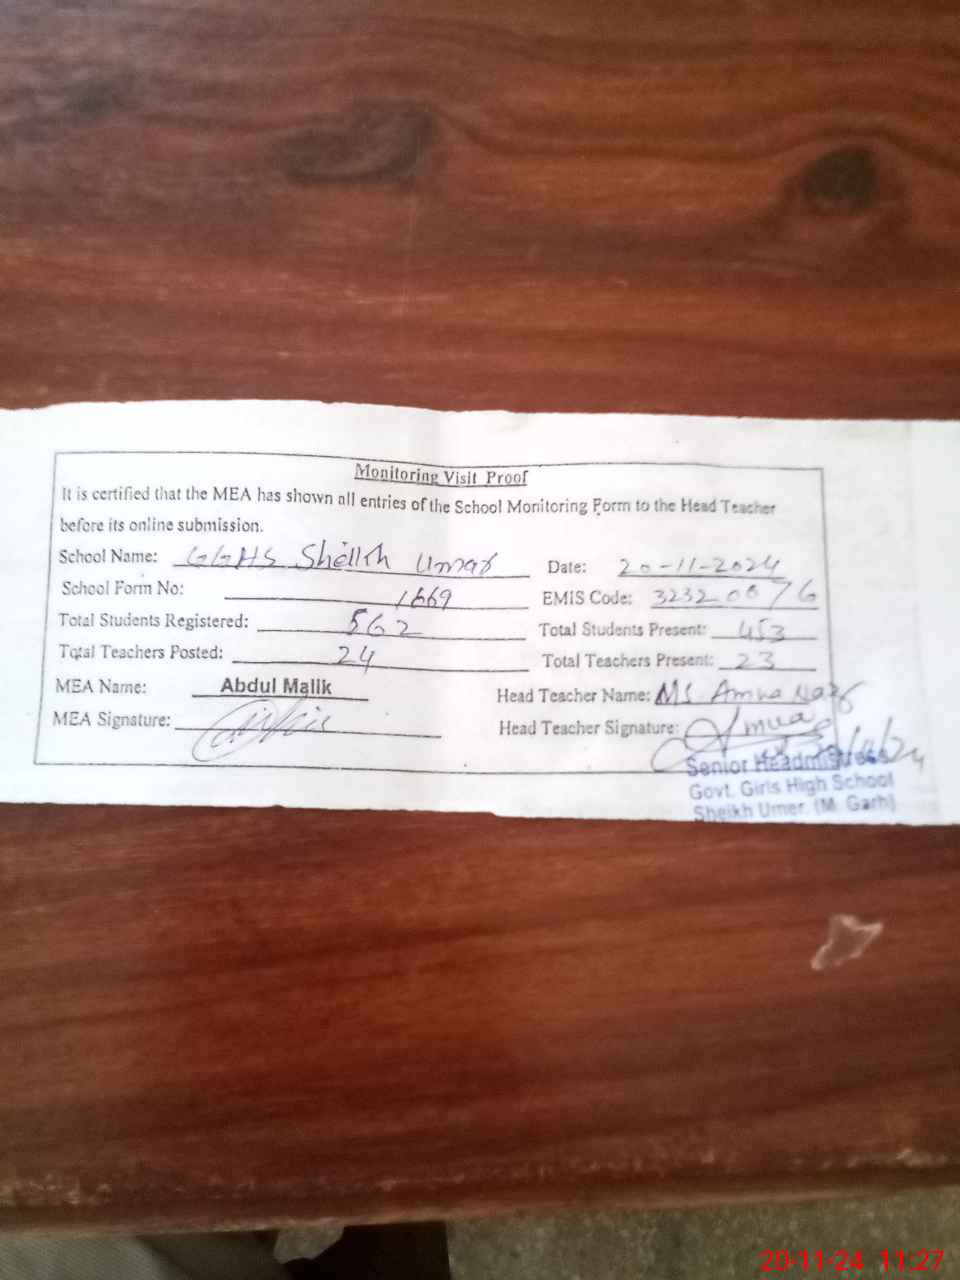 Monitoring Visit Proof
It is certified that the MEA has shown all entries of the School Monitoring Form to the Head Teacher
before its online submission.
School Name: GGHS Sheikh Umar Date: 20-11-2024
School Form No: 1669 EMIS Code: 32320076
Total Students Registered: 562 Total Students Present: 453
Total Teachers Posted: 24 Total Teachers Present: 23
MEA Name: Abdul Malik Head Teacher Name: MS. Amna Naz
MEA Signature: Head Teacher Signature: Amna
Senior Headmistress
Govt. Girls High School
Sheikh Umer. (M. Garh)
20-11-24 11:27